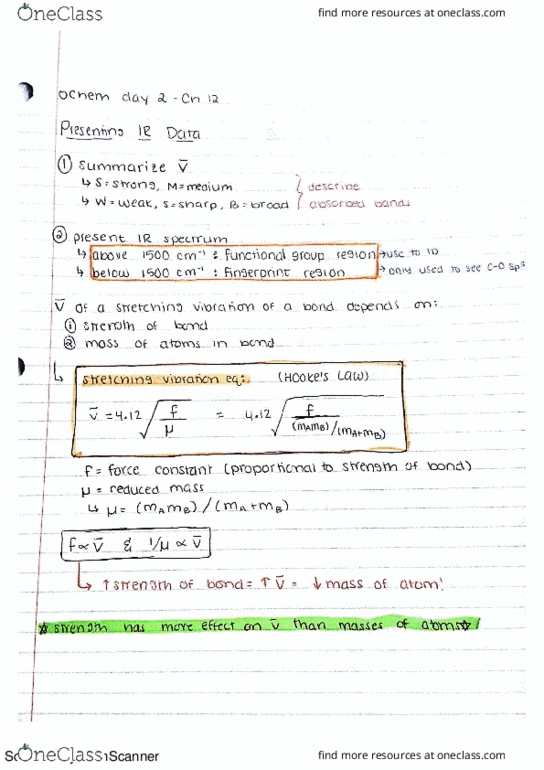 OneClass
find more resources at oneclass.com
ochem day 2 - Ch 12
Presenting IR Data
① summarize ν̅
↳ S=strong, M=medium
↳ W=weak, s=sharp, B=broad
describe
absorbed bands
② present IR spectrum
↳ above 1500 cm⁻¹ : functional group region → use to ID
↳ below 1500 cm⁻¹ : fingerprint region → only used to see C-O sp³
ν̅ of a stretching vibration of a bond depends on:
① strength of bond
② mass of atoms in bond
↳ stretching vibration eq: (Hooke's Law)
ν̅ = 4.12 √(f/μ) = 4.12 √(f/(mAmB)/(mA+mB))
f = force constant (proportional to strength of bond)
μ = reduced mass
↳ μ = (mAmB)/(mA+mB)
f ∝ ν̅ & 1/μ ∝ ν̅
↳ ↑ strength of bond = ↑ ν̅ = ↓ mass of atom!
☆ strength has more effect on ν̅ than masses of atoms ☆!
OneClass
Scanner
find more resources at oneclass.com